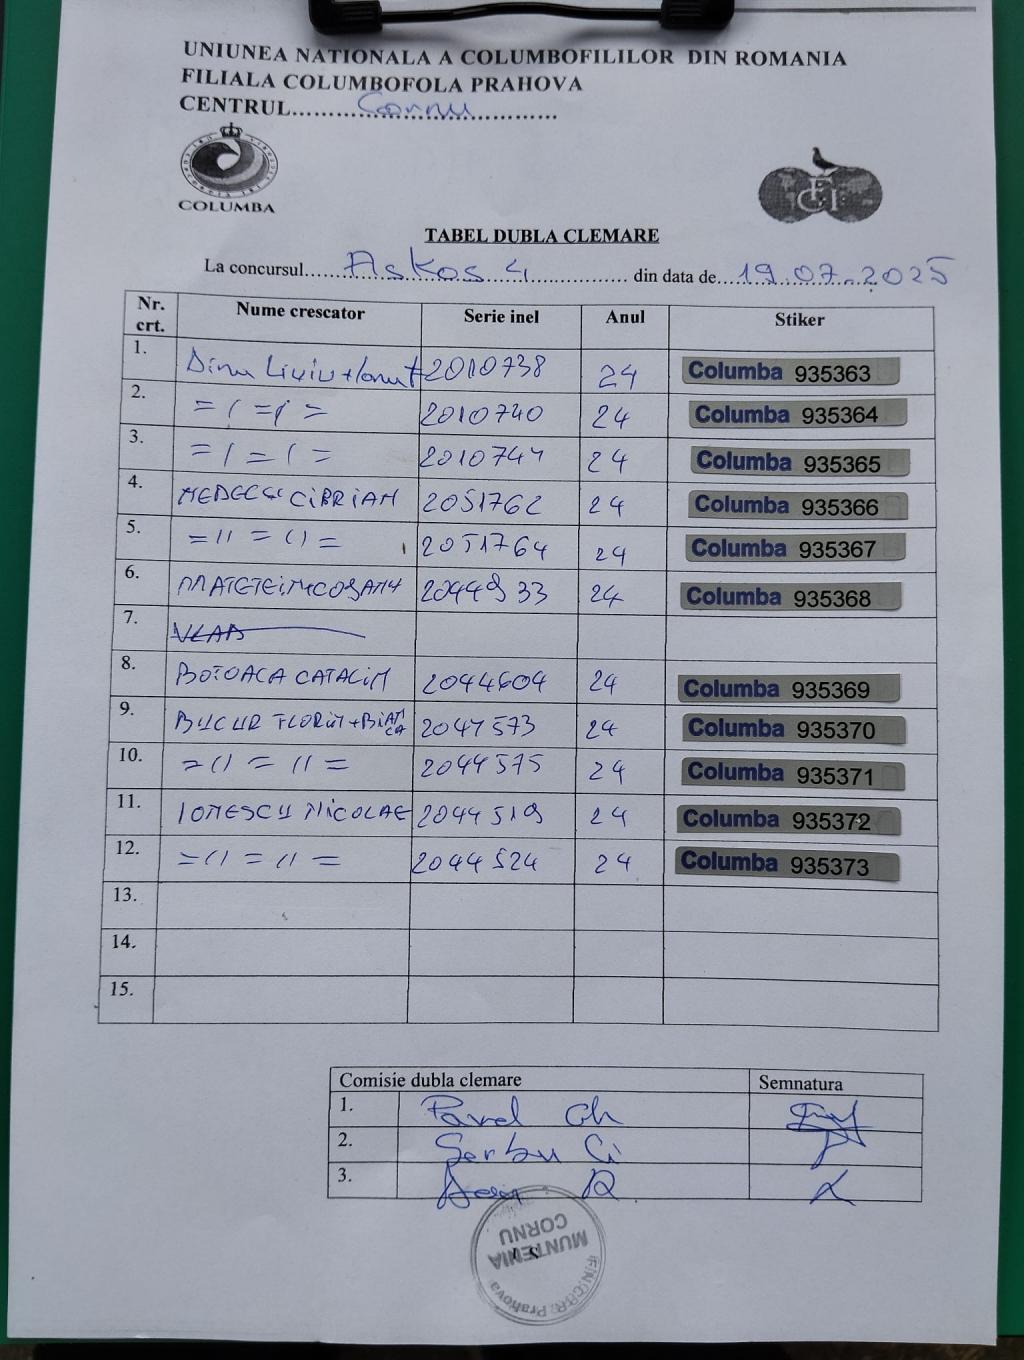 UNIUNEA NATIONALA A COLUMBOFILILOR DIN ROMANIA
FILIALA COLUMBOFOLA PRAHOVA
CENTRUL.......Cornu.......
COLUMBA
FCI
TABEL DUBLA CLEMARE
La concursul.....Askos 4.............. din data de...19.07.2025
Nr. crt. Nume crescator Serie inel Anul Stiker
1. Dinu Liviu+Ionut 2010738 24 Columba 935363
2. =//=//= 2010740 24 Columba 935364
3. =//=//= 2010744 24 Columba 935365
4. CIPRIAN 2051762 24 Columba 935366
5. =//=//= 2051764 24 Columba 935367
6. 2044933 24 Columba 935368
7. VLAD
8. BOTOACA CATALIN 2044604 24 Columba 935369
9. BUCUR FLORIN+BIANCA 2044573 24 Columba 935370
10. =//=//= 2044575 24 Columba 935371
11. IONESCU NICOLAE 2044519 24 Columba 935372
12. =//=//= 2044524 24 Columba 935373
13.
14.
15.
Comisie dubla clemare Semnatura
1. Pavel Gh
2. Serbu Ci
3.
MUNTENIA
CORNU
Prahova